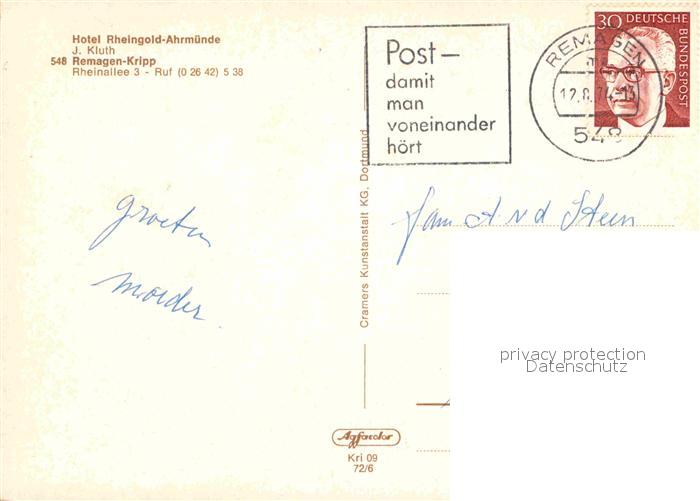 Hotel Rheingold-Ahrmünde
J. Kluth
548 Remagen-Kripp
Rheinallee 3 - Ruf (0 26 42) 5 38
Post-
damit
man
voneinander
hört
REMAGEN
12.8.74-13
548
30 DEUTSCHE
BUNDESPOST
Groeten
moeder
Fam A v d Steen
Cramers Kunstanstalt KG, Dortmund
privacy protection
Datenschutz
Agfacolor
Kri 09
72/6